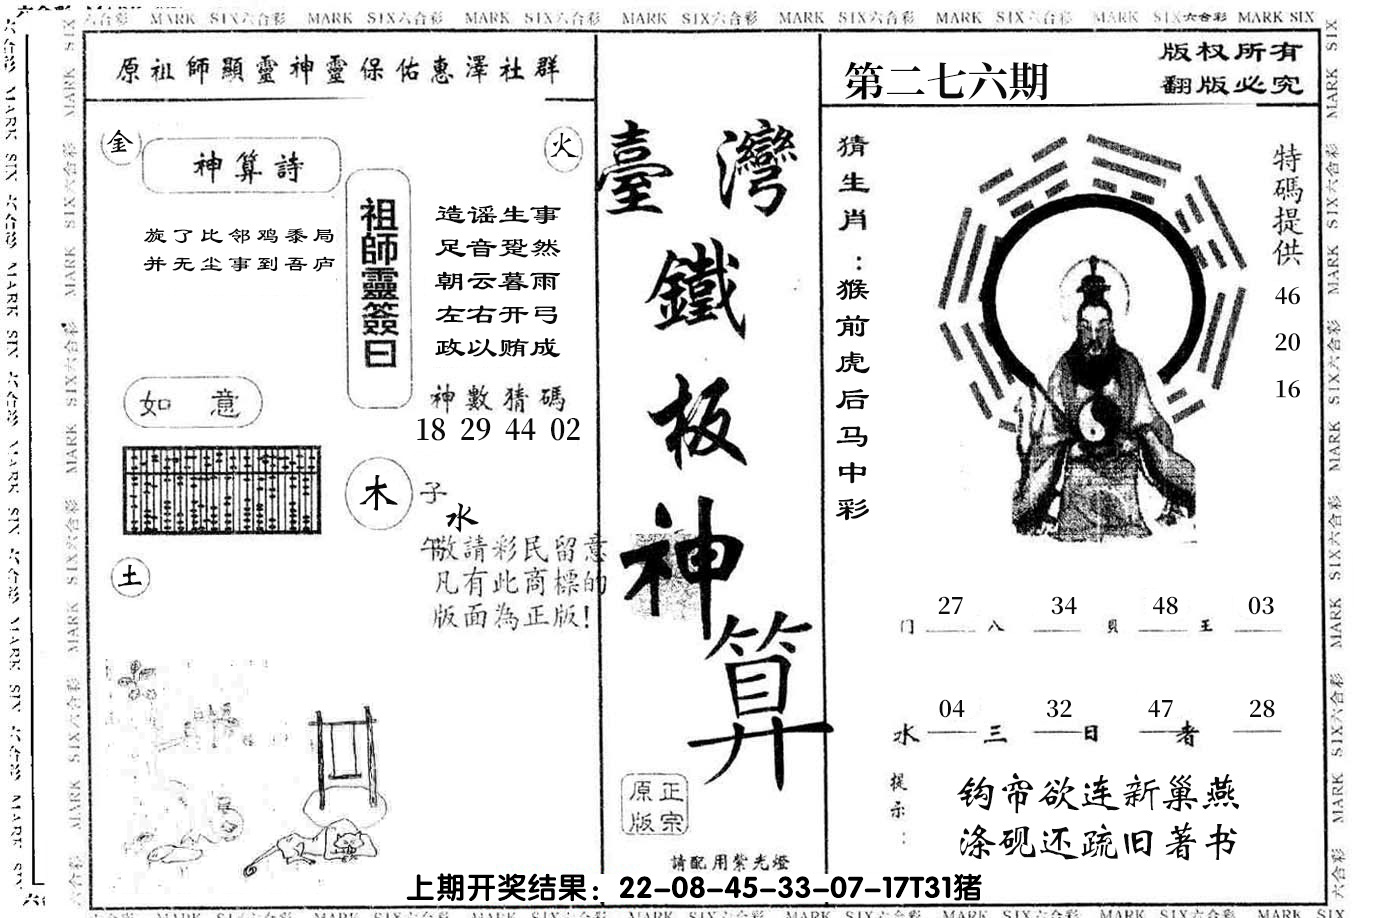 MARK SIX六合彩 MARK SIX六合彩 MARK SIX六合彩 MARK SIX六合彩 MARK SIX六合彩 MARK SIX六合彩 MARK SIX六合彩 MARK SIX
原祖師顯靈神靈保佑惠澤社群
金
神算詩
火
旋了比邻鸡黍局
并无尘事到吾庐
祖師靈簽曰
造谣生事
足音跫然
朝云暮雨
左右开弓
政以贿成
神數猜碼
18 29 44 02
如 意
木
子
水
午
敬請彩民留意
凡有此商標的
版面為正版！
土
臺灣
鐵
板
神
算
正宗
原版
請配用紫光燈
第二七六期
版权所有
翻版必究
猜生肖：猴前虎后马中彩
特碼提供
46
20
16
27 34 48 03
门 八 貝 王
04 32 47 28
水 三 日 者
提示：
钩帘欲连新巢燕
涤砚还疏旧著书
上期开奖结果：22-08-45-33-07-17T31猪